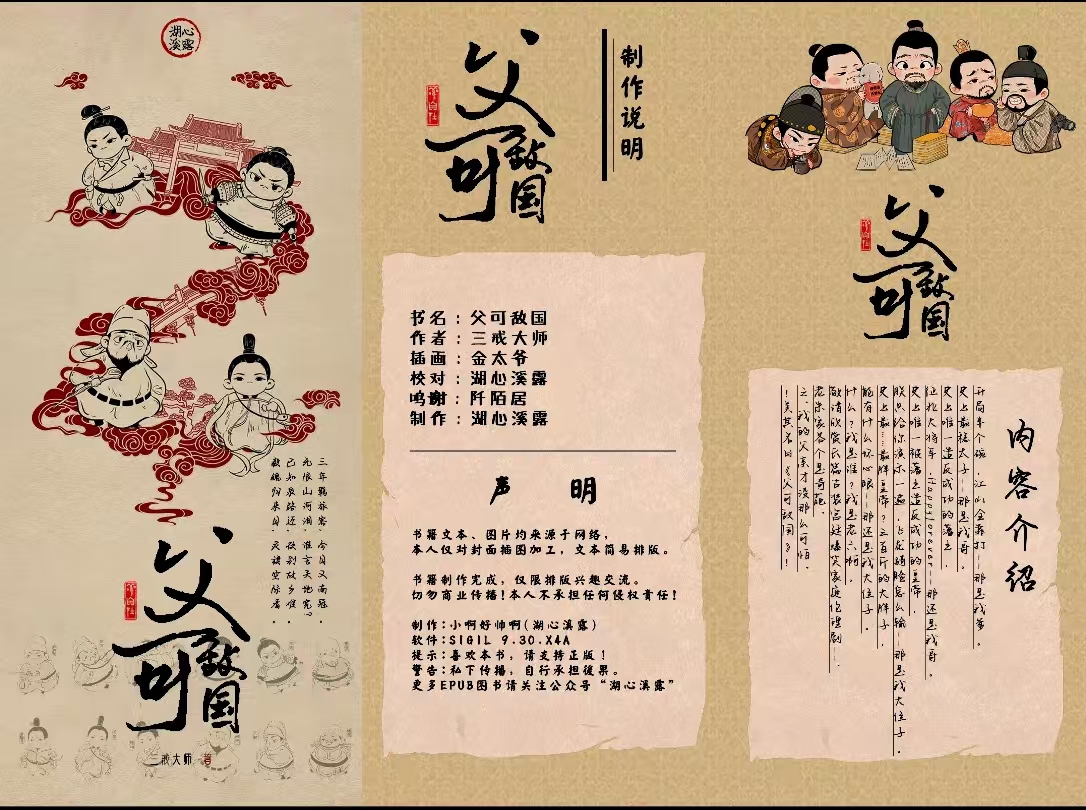 湖心
溪露
三年羁旅客，今日又南冠。
无限山河泪，谁言天地宽？
已知泉路近，欲别故乡难。
毅魄归来日，灵旗空际看。
父可敌国
三戒大师 著
父可敌国
制作说明
书名：父可敌国
作者：三戒大师
插画：金太爷
校对：湖心溪露
鸣谢：阡陌居
制作：湖心溪露
声 明
书籍文本、图片均来源于网络，
本人仅对封面插图加工，文本简易排版。
书籍制作完成，仅限排版兴趣交流。
切勿商业传播！本人不承担任何侵权责任！
制作：小啊好帅啊(湖心溪露)
软件：SIGIL 9.30.X4A
提示：喜欢本书，请支持正版！
警告：私下传播，自行承担後果。
更多EPUB图书请关注公众号“湖心溪露”
父可敌国
内容介绍
开局半个碗，江山全靠打—那是我爹。
史上最稳太子—那是我哥。
史上唯一造反成功的藩王、
征北大将军、Happyforever—那还是我哥。
史上唯一被藩王造反成功的皇帝，
朕只给你演示一遍，飞龙骑脸怎么输—那是我大侄子。
史上最……最胖皇帝？三百斤的大胖子，
能有什么坏心眼—那还是我大侄子。
什么？我是谁？我是老六啊。
敬请欣赏大型古装宫廷爆笑家庭伦理剧—
老朱家各个是奇葩，
之，我的父亲才没那么可怕，
！美其名曰《父可敌国》！